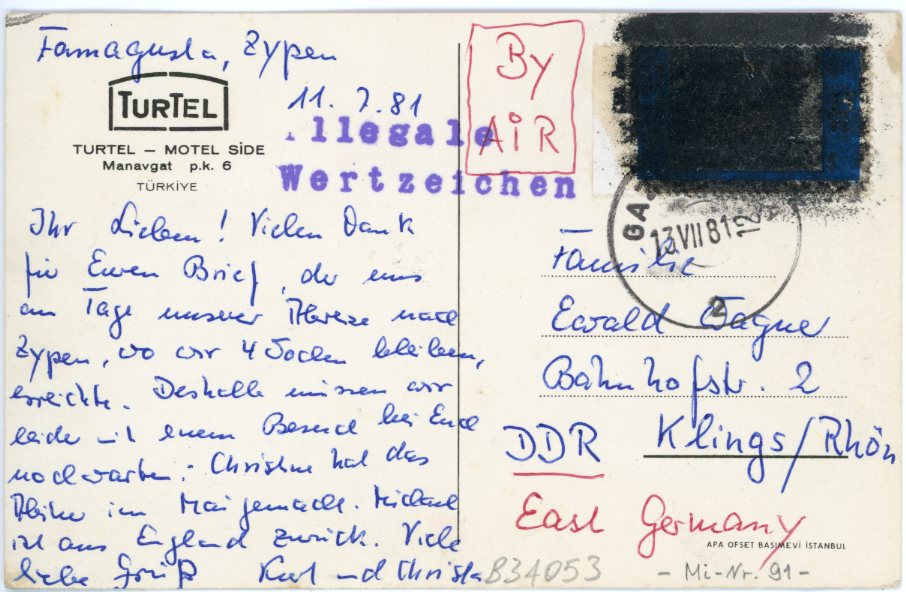 Famagusta, Zypen
11. 7. 81
TURTEL
TURTEL – MOTEL SİDE
Manavgat p.k. 6
TÜRKİYE
By
AiR
illegale
Wertzeichen
Ihr Lieben! Vielen Dank
für Euren Brief, der uns
am Tage unserer Abreise nach
Zypen, wo wir 4 Wochen bleiben,
erreichte. Deshalb müssen wir
leider mit einem Besuch bei Euch
noch warten. Christine hat das
Abitur im Mai gemacht. Michael
ist aus England zurück. Viele
liebe Grüße Kurt und Christa
13 VII 81 12
2
Familie
Ewald Wagner
Bahnhofstr. 2
DDR Klings/Rhön
East Germany
APA OFSET BASIMEVİ İSTANBUL
B34053
- Mi-Nr. 91 -